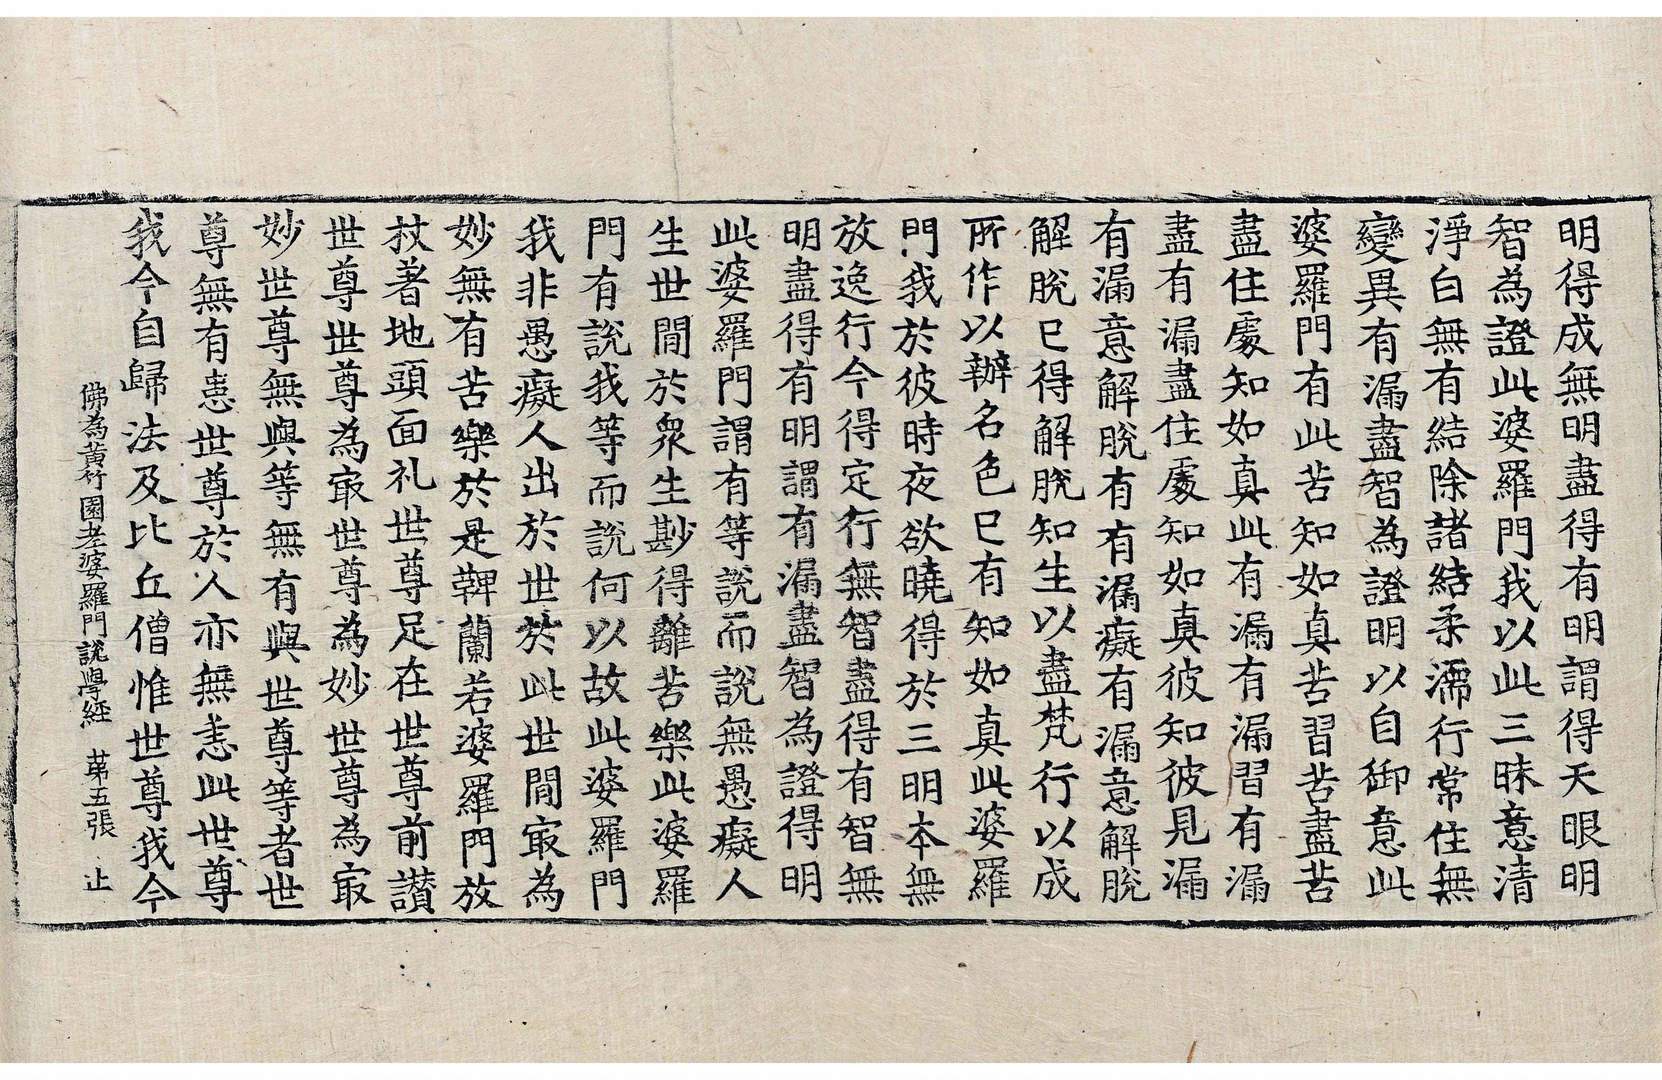 明得成無明盡得有明謂得天眼明
智為證此婆羅門我以此三昧意清
淨白無有結除諸結柔濡行常住無
變異有漏盡智為證明以自御意此
婆羅門有此苦知如真苦習苦盡苦
盡住處知如真此有漏有漏習有漏
盡有漏盡住處知如真彼知彼見漏
有漏意解脫有有漏癡有漏意解脫
解脫已得解脫知生以盡梵行以成
所作以辦名色已有知如真此婆羅
門我於彼時夜欲曉得於三明本無
放逸行今得定行無智盡得有智無
明盡得有明謂有漏盡智為證得明
此婆羅門謂有等說而說無愚癡人
生世間於衆生尠得離苦樂此婆羅
門有說我等而說何以故此婆羅門
我非愚癡人出於世於此世間㝡為
妙無有苦樂於是鞞蘭若婆羅門放
杖著地頭面礼世尊足在世尊前讃
世尊世尊為㝡世尊為妙世尊為㝡
妙世尊無與等無有與世尊等者世
尊無有恚世尊於人亦無恚此世尊
我今自歸法及比丘僧惟世尊我今
佛為黃竹園老婆羅門說學經 苐五張 止